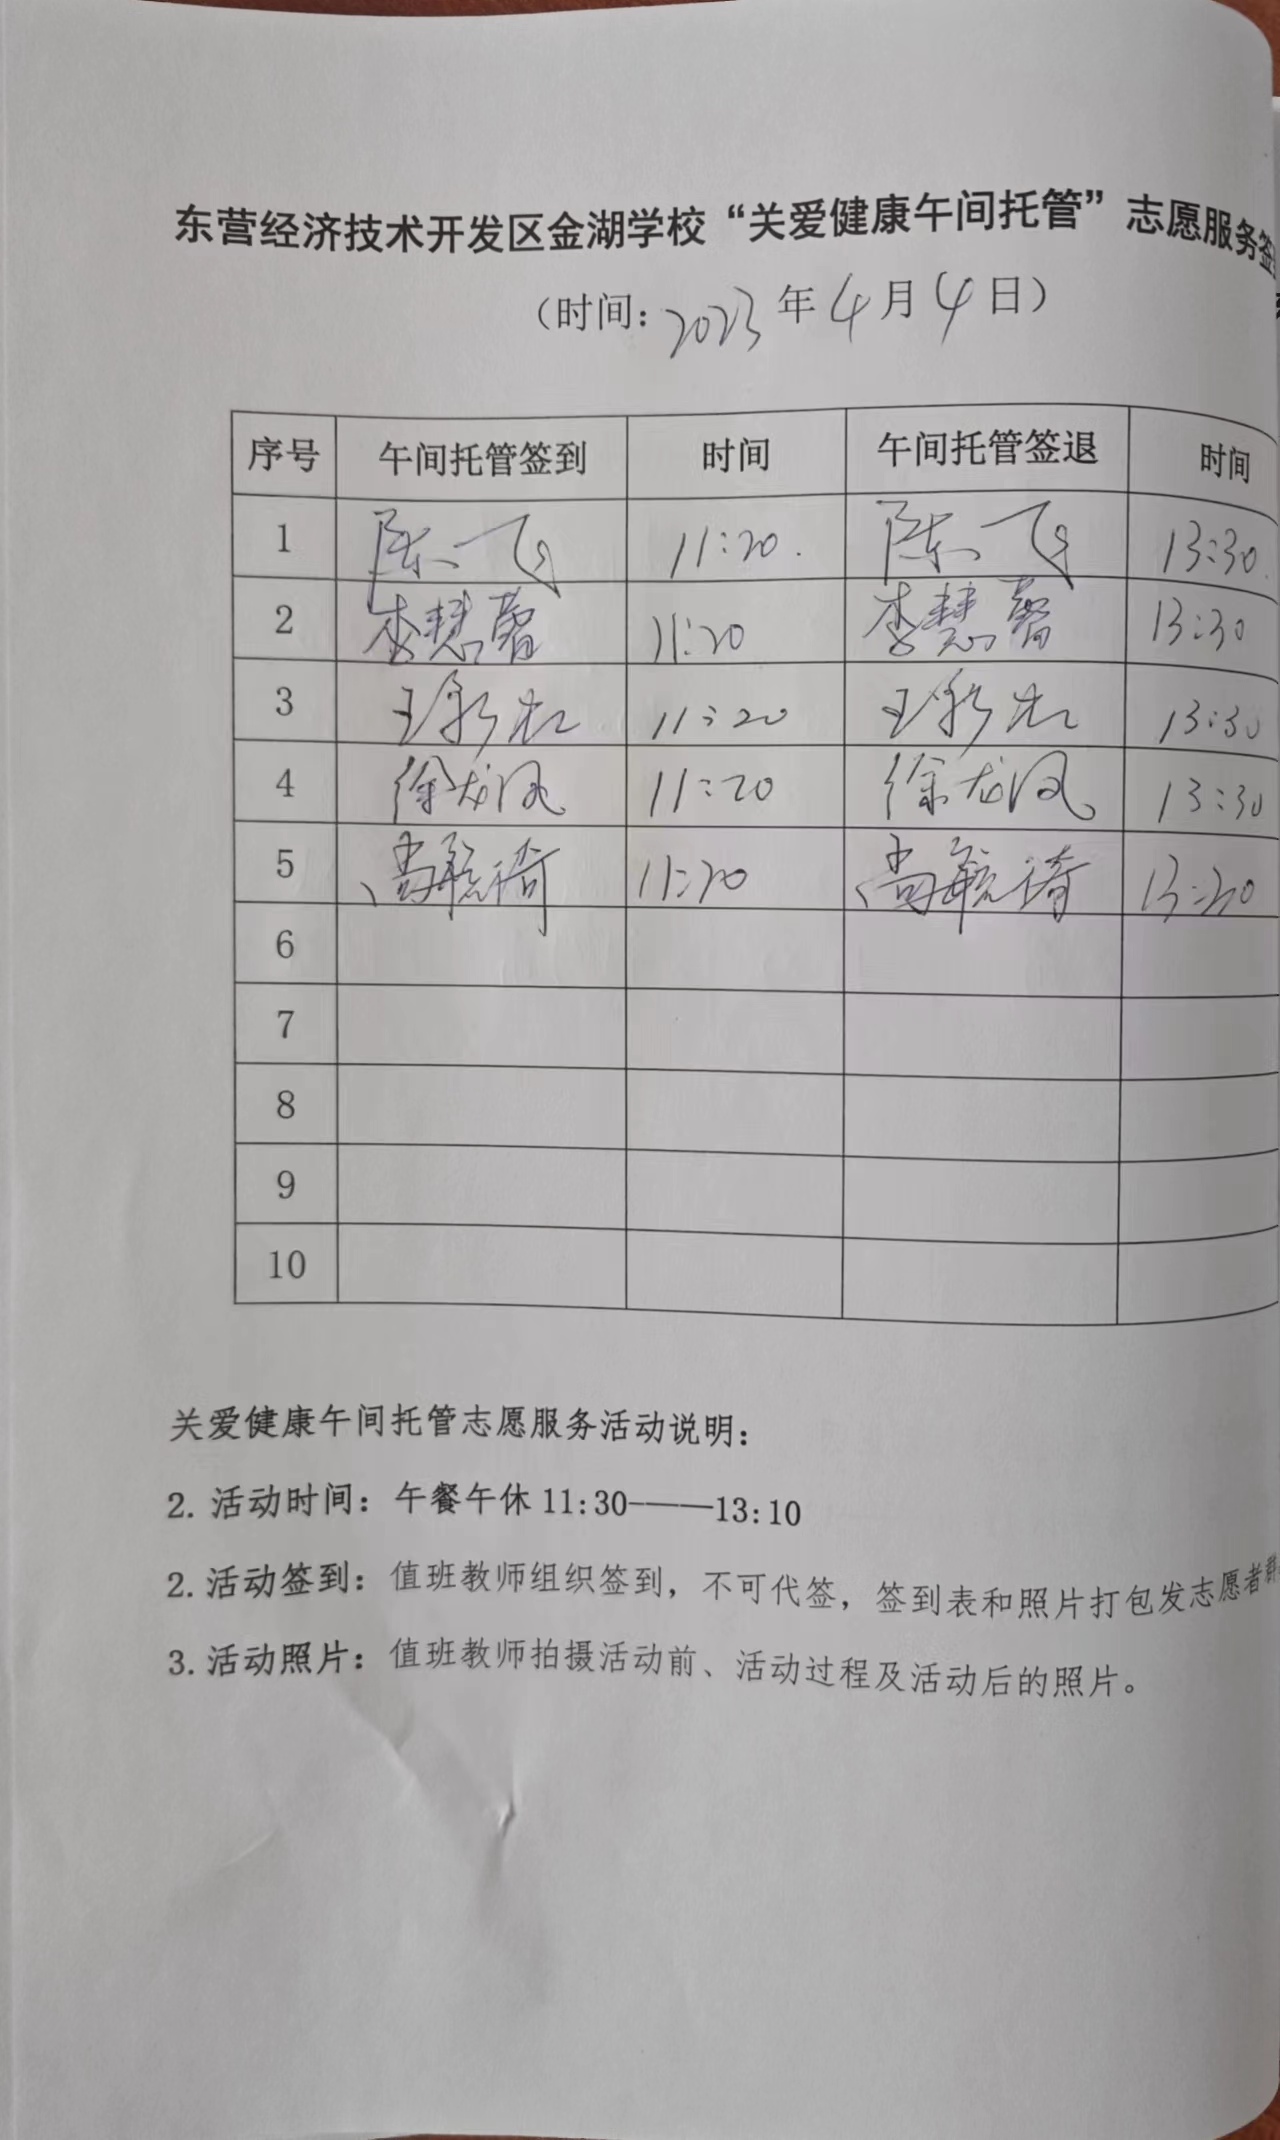 东营经济技术开发区金湖学校“关爱健康午间托管”志愿服务签
（时间：2023年4月4日）
序号 午间托管签到 时间 午间托管签退 时间
1 陈一飞 11:20. 陈一飞 13:30.
2 李慧馨 11:20 李慧馨 13:30
3 王彩虹 11:20 王彩虹 13:30
4 徐龙凤 11:20 徐龙凤 13:30
5 尚毓琦 11:20 尚毓琦 13:30
6
7
8
9
10
关爱健康午间托管志愿服务活动说明：
2. 活动时间：午餐午休 11:30———13:10
2. 活动签到：值班教师组织签到，不可代签，签到表和照片打包发志愿者群
3. 活动照片：值班教师拍摄活动前、活动过程及活动后的照片。